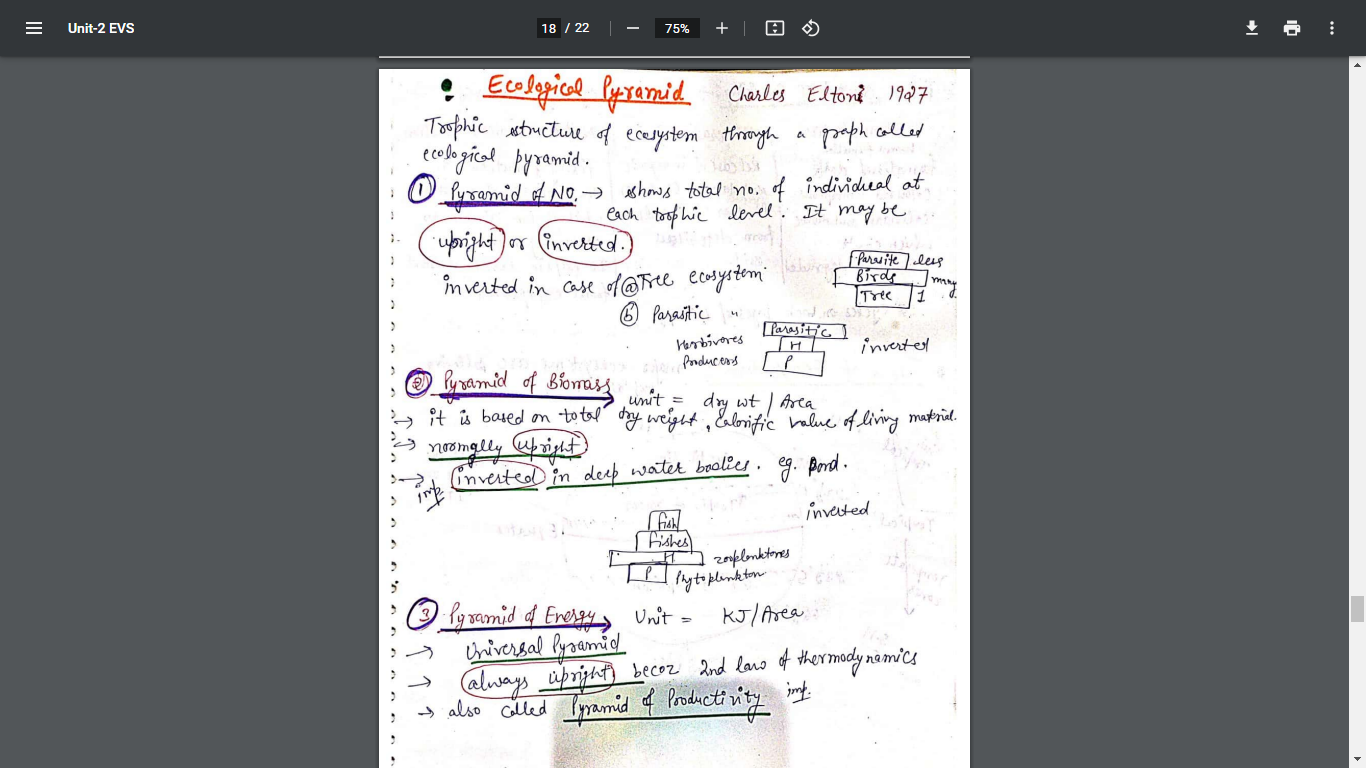 Unit-2 EVS
18 / 22
75%
Ecological Pyramid Charles Elton 1927
Trophic structure of ecosystem through a graph called
ecological pyramid.
① Pyramid of NO. → shows total no. of individual at
each trophic level. It may be
upright or inverted.
Parasite less
Birds many
Tree 1
inverted in case of ⓐ Tree ecosystem
ⓑ Parasitic "
Parasitic
Herbivores H inverted
Producers P
② Pyramid of Biomass
unit = dry wt / Area
→ it is based on total dry weight, Calorific value of living material.
→ normally upright
→ inverted in deep water bodies. eg. Pond.
imp
inverted
fish
fishes
H zooplanktones
P Phytoplankton
③ Pyramid of Energy → Unit = KJ/Area
→ Universal Pyramid
→ always upright becoz 2nd law of thermodynamics
→ also called Pyramid of Productivity imp.